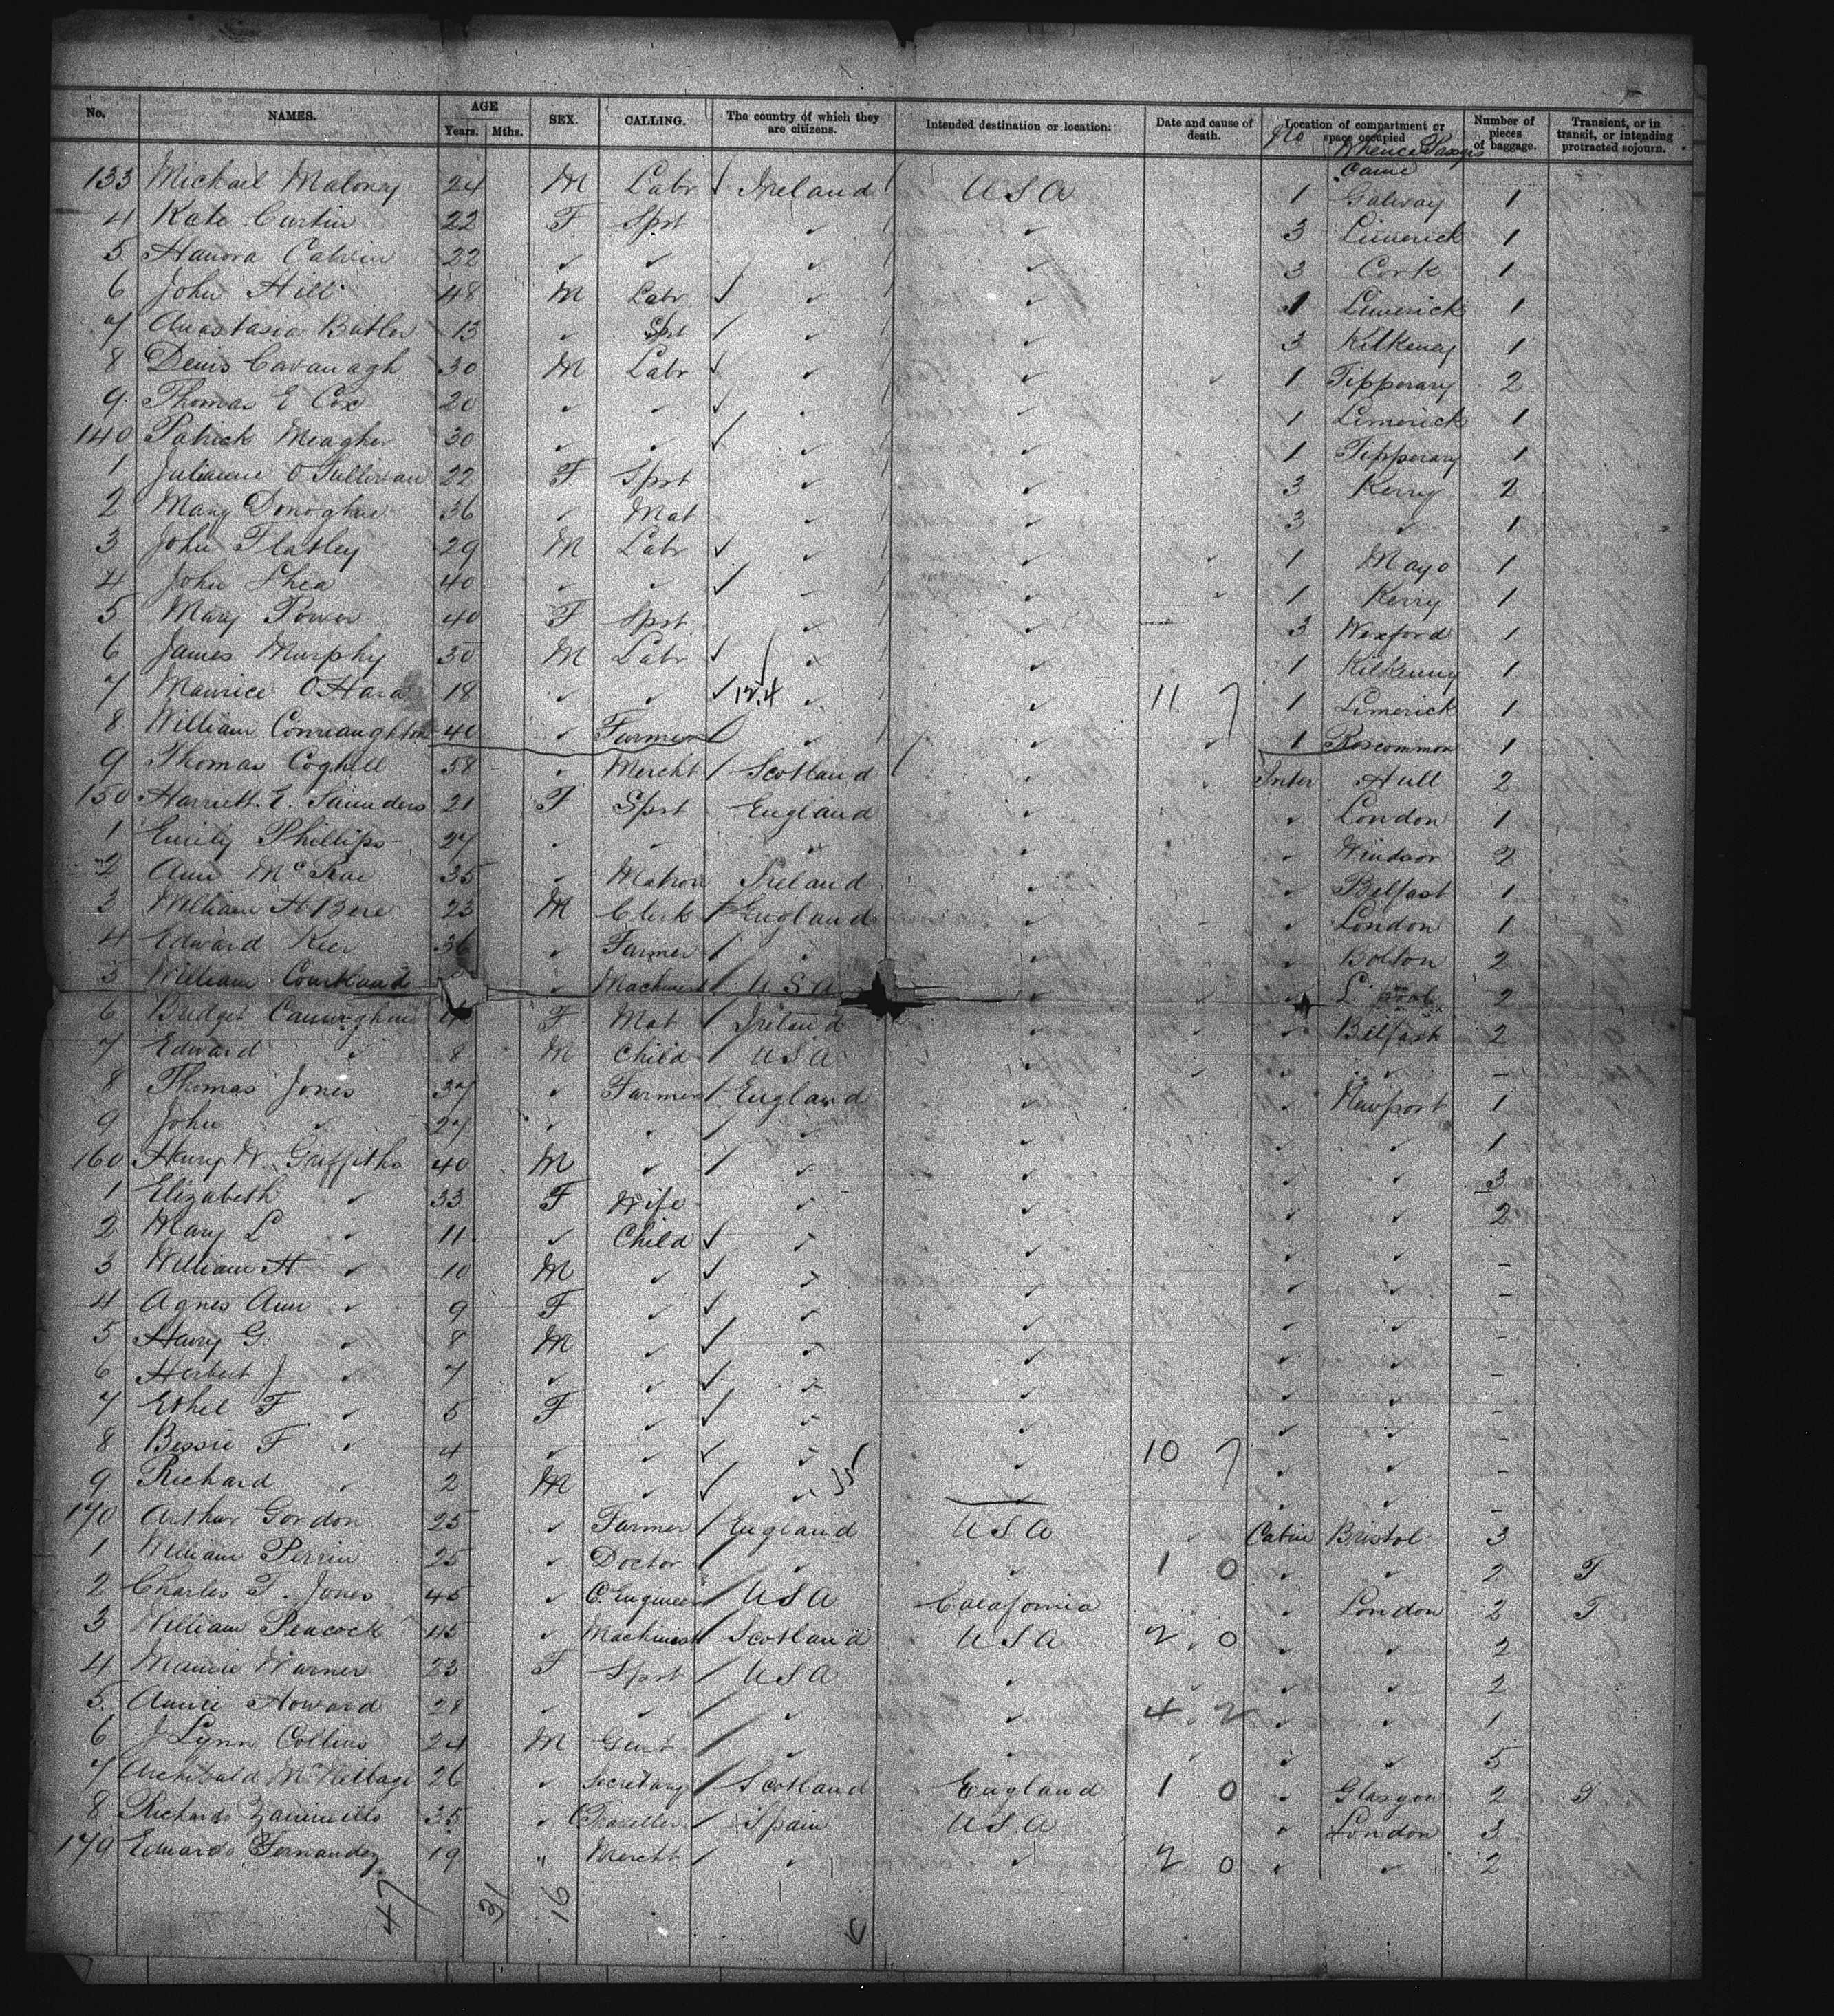 No. NAMES. AGE Years. Mths. SEX. CALLING. The country of which they are citizens. Intended destination or location. Date and cause of death. Location of compartment or space occupied Number of pieces of baggage. Transient, or in transit, or intending protracted sojourn.
No Whence Passgrs Came
133 Michael Maloney 24 M Labr Ireland USA 1 Galway 1
4 Kate Curtin 22 F Spst ✓ ✓ 3 Limerick 1
5 Hanora 22 ✓ ✓ ✓ ✓ 3 Cork 1
6 John Hill 48 M Labr ✓ ✓ 1 Limerick 1
7 Anastasia Butler 13 ✓ Spst ✓ ✓ 3 Kilkeney 1
8 Denis Cavanagh 30 M Labr ✓ ✓ 1 Tipperary 2
9 Thomas E Cox 20 ✓ ✓ ✓ ✓ 1 Limerick 1
140 Patrick Meagher 30 ✓ ✓ ✓ ✓ 1 Tipperary 1
1 Julianne O'Sullivan 22 F Spst ✓ ✓ 3 Kerry 2
2 Mary Donoghue 36 ✓ Mat ✓ ✓ 3 ✓ 1
3 John Flatley 29 M Labr ✓ ✓ 1 Mayo 1
4 John Shea 40 ✓ ✓ ✓ ✓ 1 Kerry 1
5 Mary Power 40 F Spst ✓ ✓ 3 Wexford 1
6 James Murphy 30 M Labr ✓ ✓ 1 Kilkenny 1
7 Maurice O'Hara 18 ✓ ✓ ✓ ✓ 11 1 Limerick 1
8 William Connaughton 40 ✓ Farmer ✓ ✓ 1 Roscommon 1
9 Thomas Coghill 58 ✓ Mercht Scotland ✓ Inter Hull 2
150 Harriett E. Saunders 21 F Spst England ✓ ✓ London 1
1 Emily Phillips 27 ✓ ✓ ✓ ✓ ✓ Windsor 2
2 Ann McRae 35 ✓ Matron Ireland ✓ ✓ Belfast 1
3 William H Bere 23 M Clerk England ✓ ✓ London 1
4 Edward Keer 36 ✓ Farmer ✓ ✓ ✓ Bolton 2
5 William Courtland ✓ Machinest USA ✓ ✓ L'pool 2
6 Bridget Cunningham F Mat Ireland ✓ ✓ Belfast 2
7 Edward ✓ 8 M Child USA ✓ ✓ ✓ -
8 Thomas Jones 37 ✓ Farmer England ✓ ✓ Newport 1
9 John ✓ 27 ✓ ✓ ✓ ✓ ✓ ✓ 1
160 Henry W. Griffiths 40 M ✓ ✓ ✓ ✓ ✓ 3
1 Elizabeth ✓ 33 F Wife ✓ ✓ ✓ ✓ 2
2 Mary L ✓ 11 ✓ Child ✓ ✓ ✓ ✓ -
3 William H ✓ 10 M ✓ ✓ ✓ ✓ ✓ -
4 Agnes Ann ✓ 9 F ✓ ✓ ✓ ✓ ✓ -
5 Harry G. ✓ 8 M ✓ ✓ ✓ ✓ ✓ -
6 Herbert J ✓ 7 ✓ ✓ ✓ ✓ ✓ ✓ -
7 Ethel F ✓ 5 F ✓ ✓ ✓ ✓ ✓ -
8 Bessie F ✓ 4 ✓ ✓ ✓ ✓ 10 ✓ ✓ -
9 Richard ✓ 2 M ✓ ✓ ✓ ✓ ✓ -
170 Arthur Gordon 25 ✓ Farmer England USA Cabin Bristol 3
1 William Perrin 25 ✓ Doctor ✓ ✓ 1 0 ✓ ✓ 2 T
2 Charles F. Jones 45 ✓ C. Engineer USA Calafornia ✓ London 2 T
3 William Peacock 45 ✓ Machinest Scotland USA 2 0 ✓ ✓ 2
4 Mamie Warner 23 F Spst USA ✓ ✓ ✓ 2
5 Annie Howard 28 ✓ ✓ ✓ ✓ 4 2 ✓ ✓ 1
6 J Lynn Collins 24 M Gent ✓ ✓ ✓ ✓ 5
7 Archibald 26 ✓ Secretary Scotland England 1 0 ✓ Glasgow 2 T
8 Richardo 35 ✓ Traveller Spain USA ✓ London 3
179 Eduardo Fernandez 19 " Mercht ✓ ✓ 2 0 ✓ ✓ 2
47 31 16